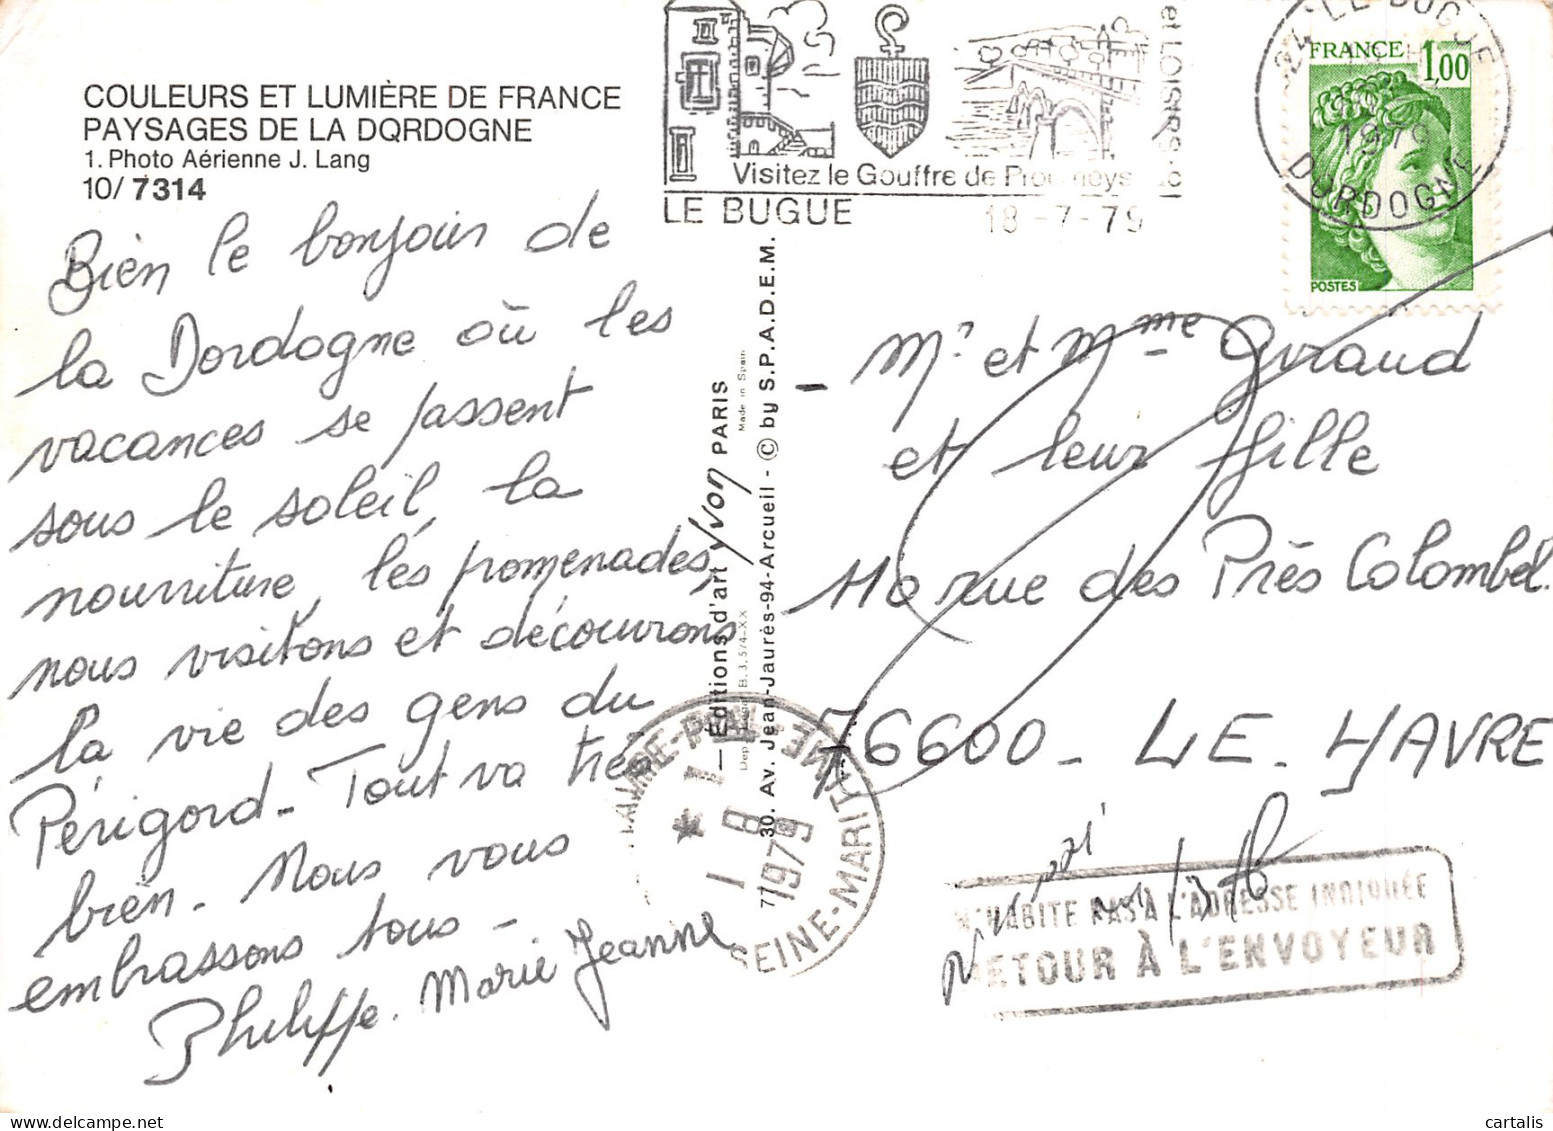 COULEURS ET LUMIÈRE DE FRANCE
PAYSAGES DE LA DQRDOGNE
1. Photo Aérienne J. Lang
10/ 7314
Bien le bonjour de
la Dordogne où les
vacances se passent
sous le soleil, la
nourriture, les promenades,
nous visitons et découvrons
la vie des gens du
Périgord - Tout va très
bien. Nous vous
embrassons tous -
Philippe. Marie Jeanne
et LOISIRS
Visitez le Gouffre de
LE BUGUE
18-7-79
24 LE BUGUE
1979
DORDOGNE
FRANCE 1,00
POSTES
Editions d'art Yvon PARIS
Made in Spain
30. Av. Jean-Jaurès-94-Arcueil - © by S.P.A.D.E.M.
1 - 8
1979
SEINE-MARITIME
Mr et Mme Giraud
et leur fille
rue des Près Colombel
76600 - LE - HAVRE
N'HABITE PAS A L'ADRESSE INDIQUÉE
RETOUR À L'ENVOYEUR
cartalis